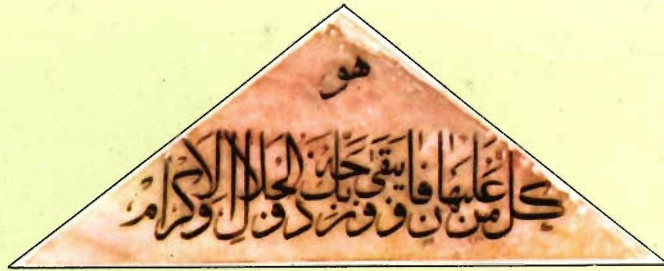 هو
كل من عليها فان ويبقى وجه ربك ذو الجلال والاكرام